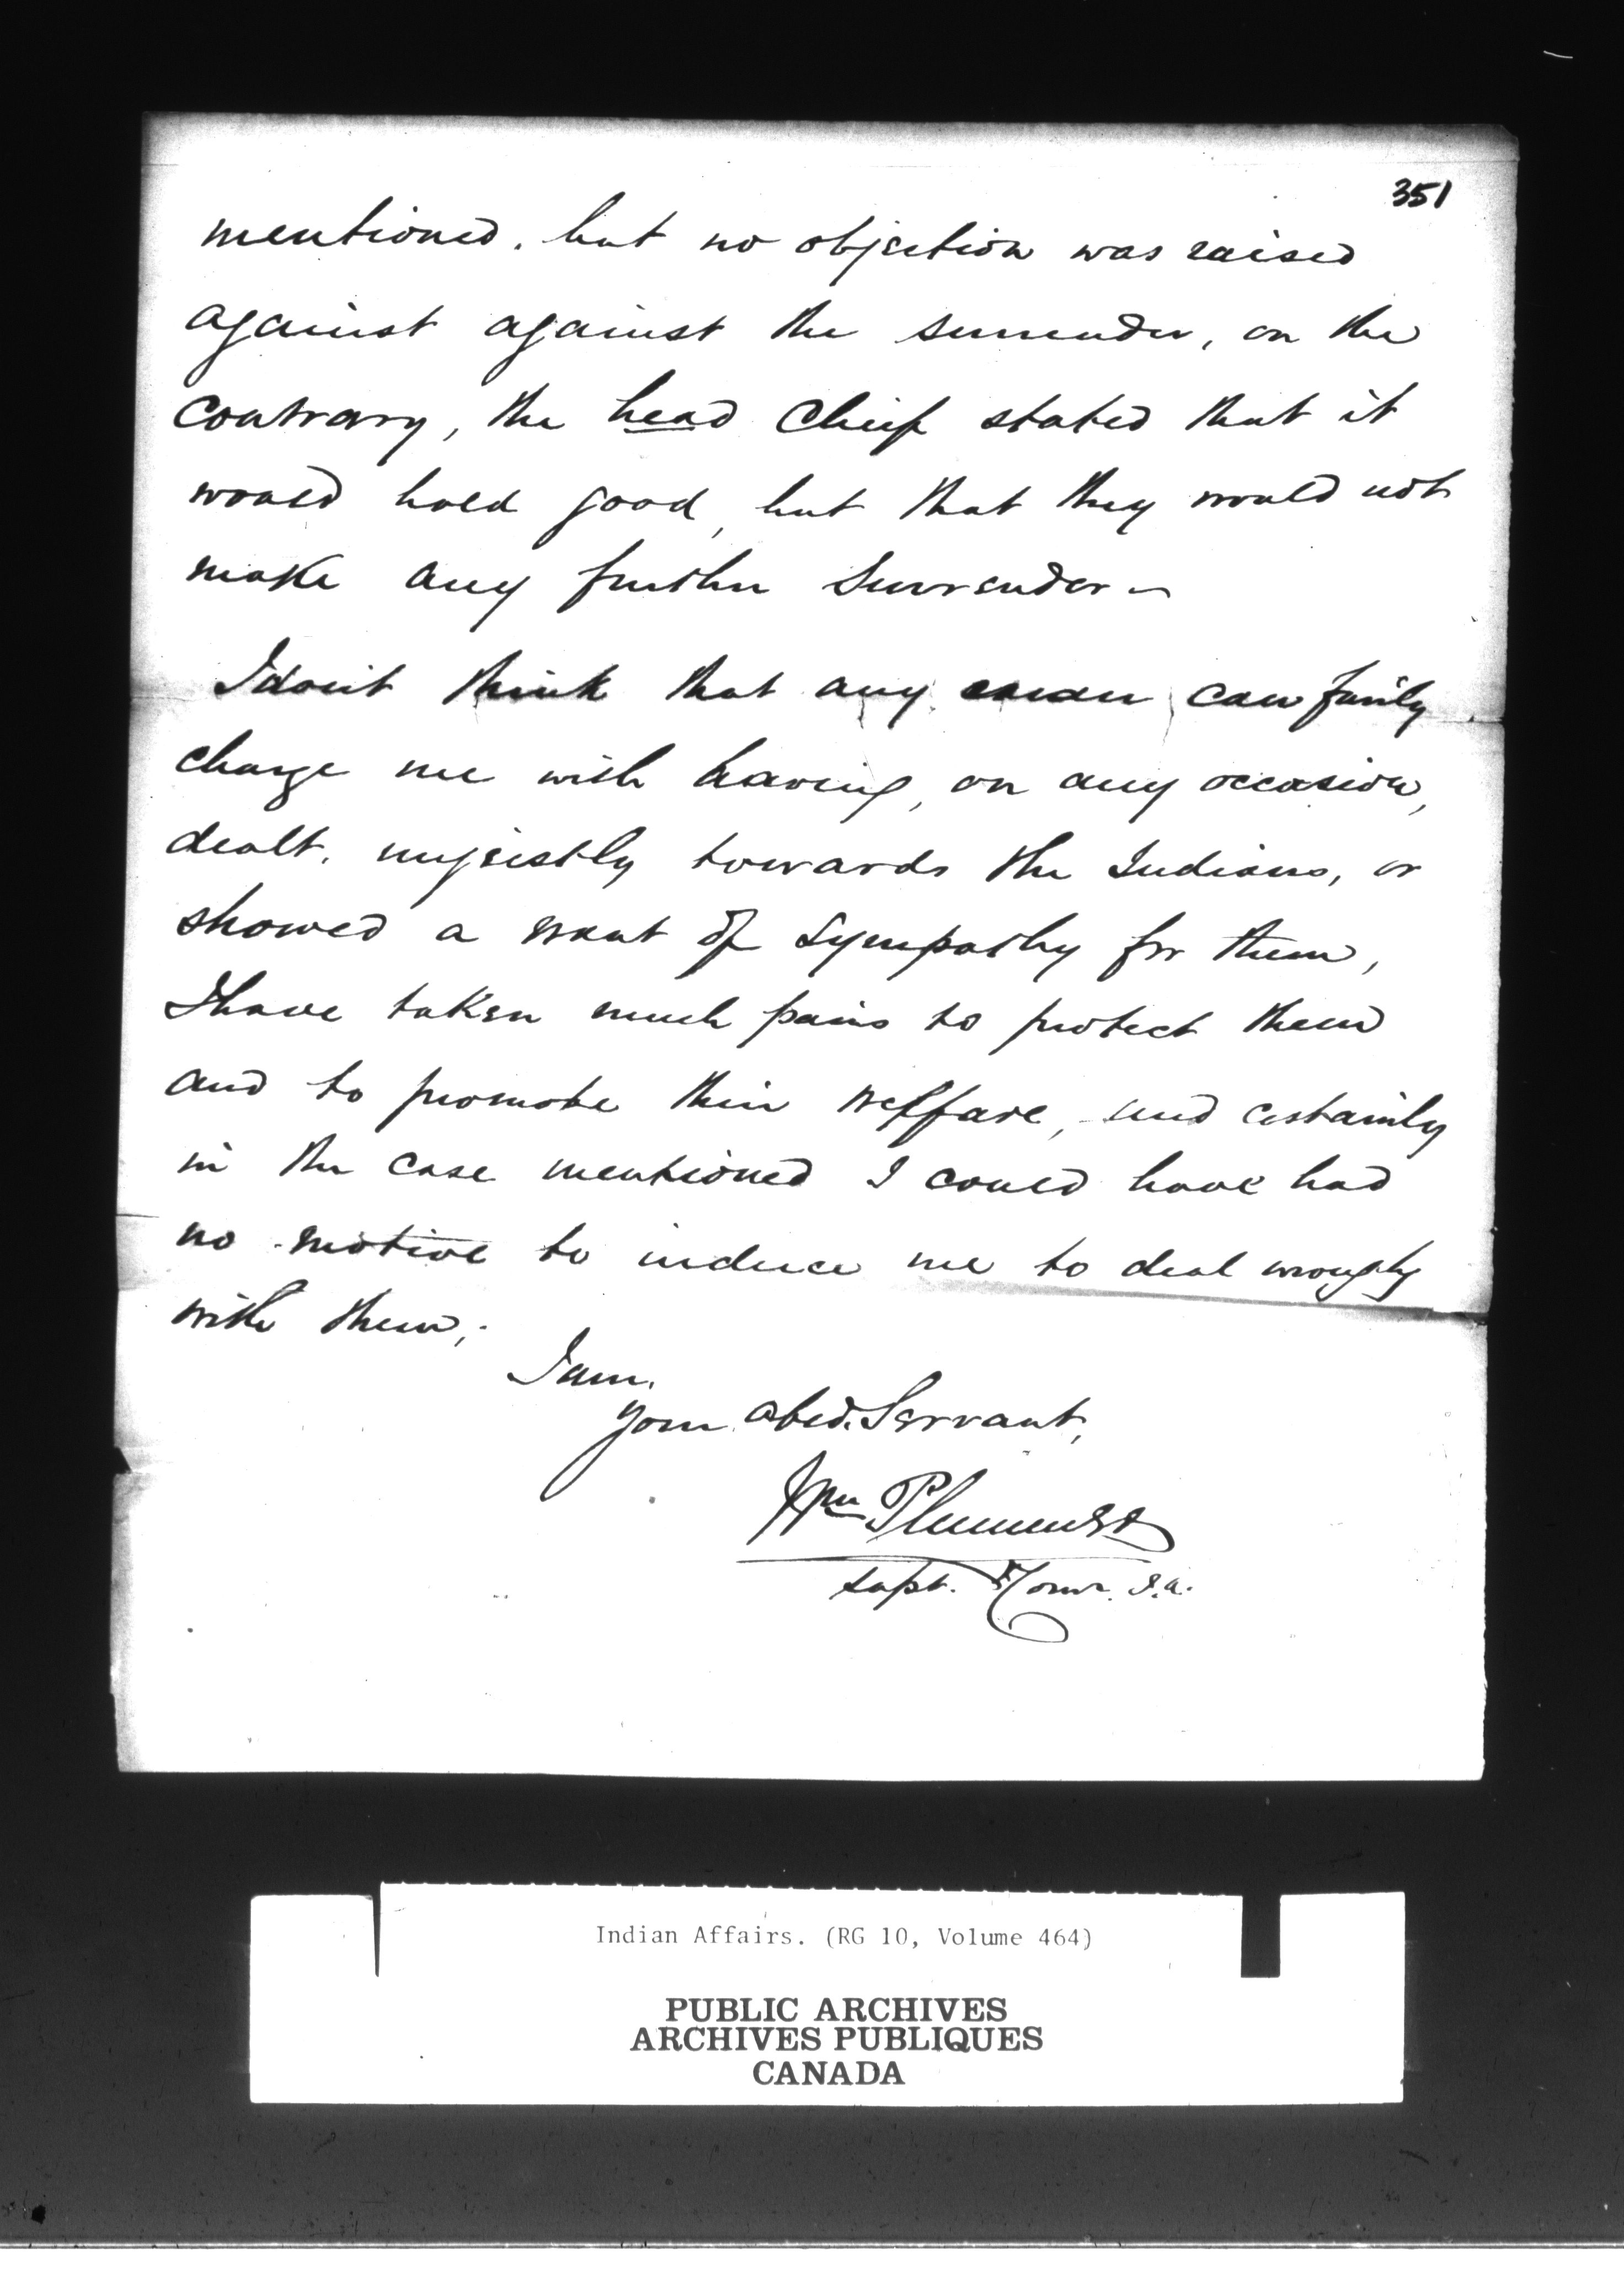 351
mentioned. but no objection was raised
against against the surrender, on the
contrary, the head Chief stated that it
would hold good, but that they would not
make any further Surrender -
I don't think that any man can fairly
charge me with having, on any occasion,
dealt. unjustly towards the Indians, or
showed a want of sympathy for them,
I have taken much pains to protect them
and to promote their welfare, and certainly
in the case mentioned I could have had
no motive to induce me to deal wrongly
with them,.
I am.
Your Obed. Servant,
Wm Plummer
Supt. & Comr. I.A.
Indian Affairs. (RG 10, Volume 464)
PUBLIC ARCHIVES
ARCHIVES PUBLIQUES
CANADA